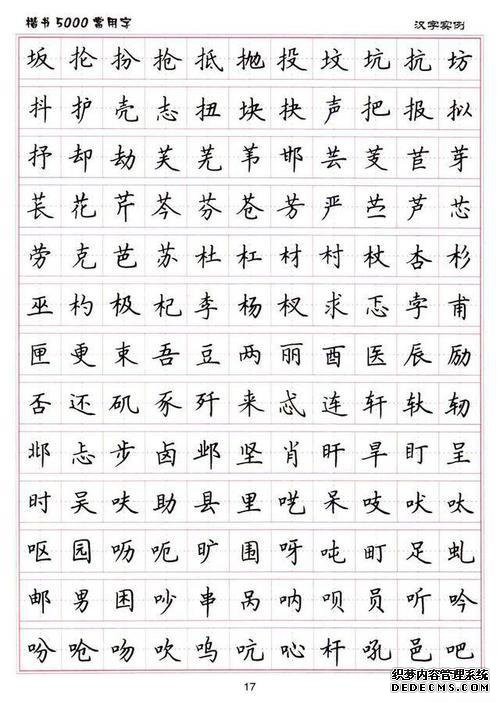 楷书5000常用字 汉字实例
坂抡扮抢抵抛投坟坑抗坊
抖护壳志扭块抉声把报拟
抒却劫芙芜苇邯芸芰苣芽
苌花芹芩芬苍芳严苎芦芯
劳克芭苏杜杠材村杖杏杉
巫杓极杞李杨杈求忑孛甫
匣更束吾豆两丽酉医辰励
否还矶豕歼来忒连轩轪轫
邶忐步卤邺坚肖旰旱盯呈
时吴呋助县里呓呆吱吠呔
呕园呖呃旷围呀吨町足虬
邮男困吵串呙呐呗员听吟
吩呛吻吹呜吭吣吼邑吧
17
织梦内容管理系统
DEDECMS.COM